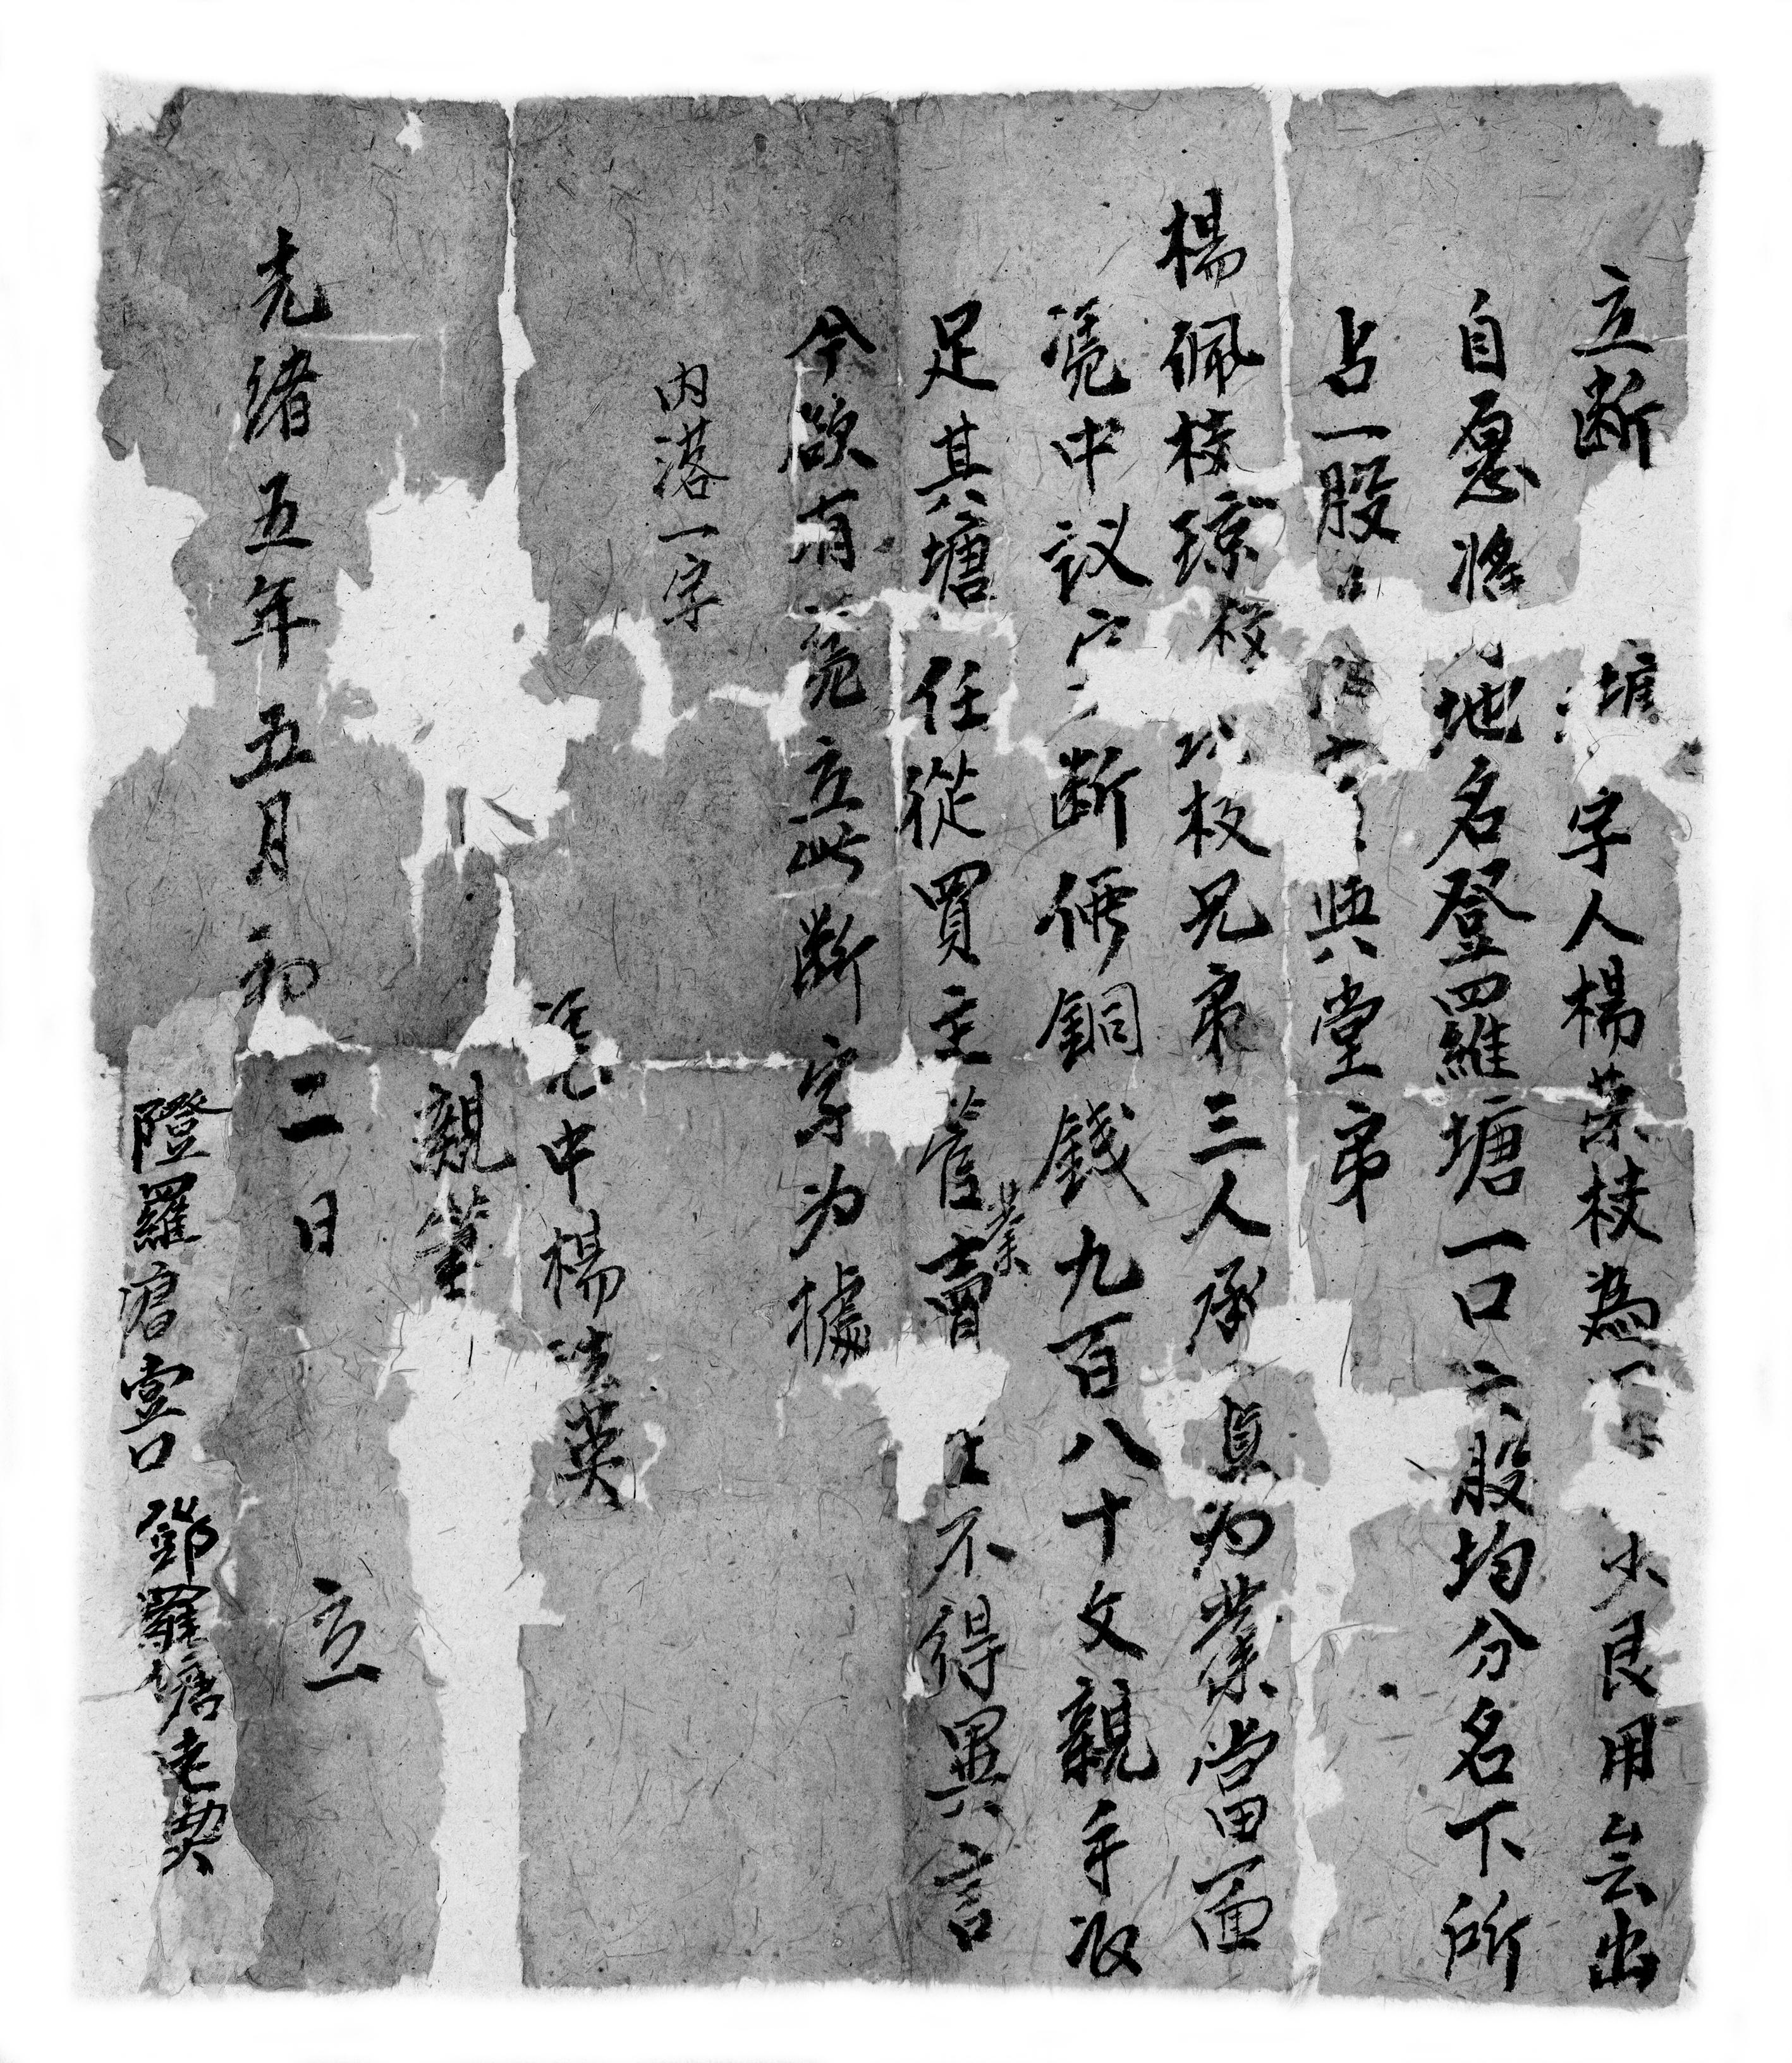 立断塘字人楊荣枝為少艮用去出
自愿将地名登羅塘一口六股均分名下所
占一股與堂弟
楊佩枝琼枝板兄弟三人承為業當面
凭中议断價銅錢九百八十文親手收
足其塘任從買主管業賣主不得異言
今欲有凭立此断字为據
内落一字
凭中楊英
親筆
光緒五年五月初二日立
隥羅溏壹口鄧羅塘老契